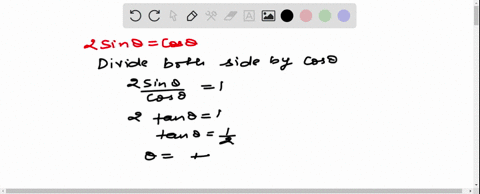 2 sinθ = cosθ
Divide both side by cosθ
2 sinθ/cosθ = 1
2 tanθ = 1
tanθ = 1/2
θ = t